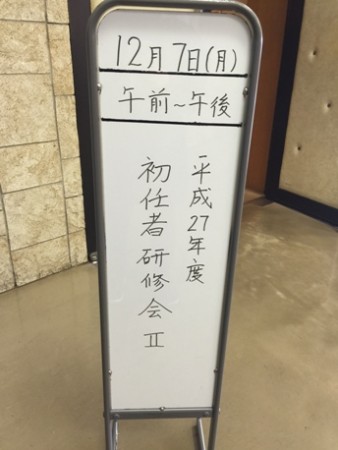 12月7日(月)
午前～午後
平成27年度
初任者研修会 Ⅱ